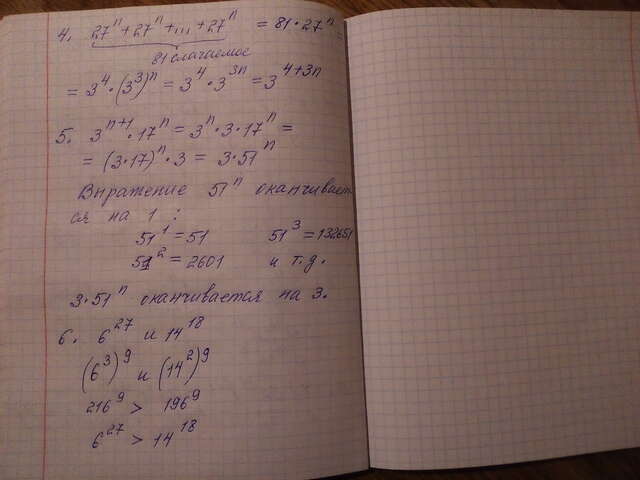 4. 27ⁿ + 27ⁿ + ... + 27ⁿ = 81 · 27ⁿ =
81 слагаемое
= 3⁴ · (3³)ⁿ = 3⁴ · 3³ⁿ = 3⁴⁺³ⁿ
5. 3ⁿ⁺¹ · 17ⁿ = 3ⁿ · 3 · 17ⁿ =
= (3 · 17)ⁿ · 3 = 3 · 51ⁿ
Выражение 51ⁿ оканчивает
ся на 1 :
51¹ = 51 51³ = 132651
51² = 2601 и т.д.
3 · 51ⁿ оканчивается на 3.
6. 6²⁷ и 14¹⁸
(6³)⁹ и (14²)⁹
216⁹ > 196⁹
6²⁷ > 14¹⁸